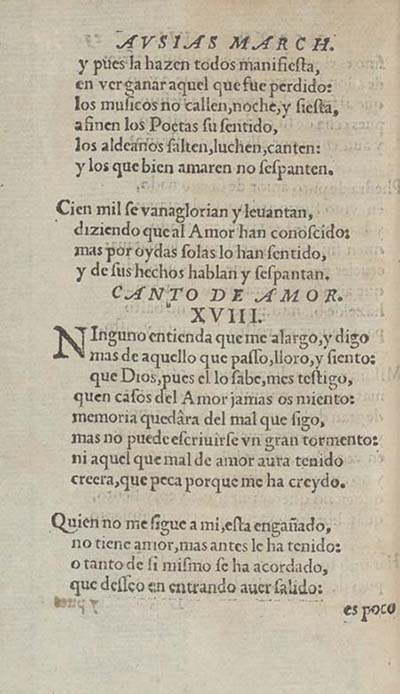 AVSIAS MARCH.
y pues la hazen todos manifiesta,
en ver ganar aquel que fue perdido:
los musicos no callen, noche, y siesta,
afinen los Poetas su sentido,
los aldeanos salten, luchen, canten:
y los que bien amaren no sespanten.
Cien mil se vanaglorian y leuantan,
diziendo que al Amor han conoscido:
mas por oydas solas lo han sentido,
y de sus hechos hablan y sespantan.
CANTO DE AMOR.
XVIII.
NInguno entienda que me alargo, y digo
mas de aquello que passo, lloro, y siento:
que Dios, pues el lo sabe, mes testigo,
quen casos del Amor jamas os miento:
memoria quedàra del mal que sigo,
mas no puede escriuirse vn gran tormento:
ni aquel que mal de amor aura tenido
creera, que peca porque me ha creydo.
Quien no me sigue a mi, esta engañado,
no tiene amor, mas antes le ha tenido:
o tanto de si mismo se ha acordado,
que desseo en entrando auer salido:
es poco